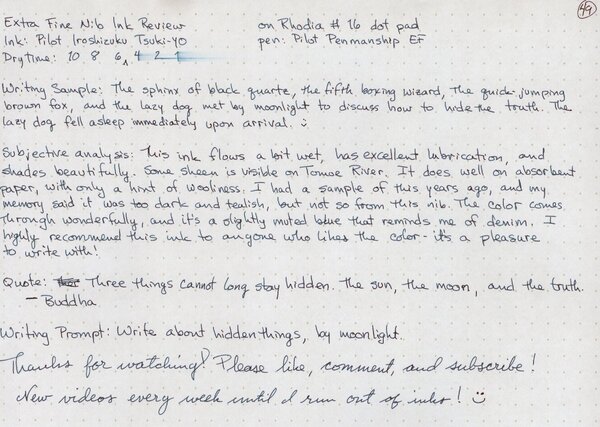 49
Extra Fine Nib Ink Review on Rhodia # 16 dot pad
Ink: Pilot Iroshizuku Tsuki-yo pen: Pilot Penmanship EF
Dry time: 10 8 6 4 2 1
Writing Sample: The sphinx of black quartz, the fifth boxing wizard, the quick jumping
brown fox, and the lazy dog met by moonlight to discuss how to hide the truth. The
lazy dog fell asleep immediately upon arrival. :)
Subjective analysis: This ink flows a bit wet, has excellent lubrication, and
shades beautifully. Some sheen is visible on Tomoe River. It does well on absorbent
paper, with only a hint of wooliness. I had a sample of this years ago, and my
memory said it was too dark and tealish, but not so from this nib. The color comes
through wonderfully, and it's a slightly muted blue that reminds me of denim. I
highly recommend this ink to anyone who likes the color - it's a pleasure
to write with!
Quote: Three things cannot long stay hidden. the sun, the moon, and the truth.
- Buddha
Writing Prompt: Write about hidden things, by moonlight.
Thanks for watching! Please like, comment, and subscribe!
New videos every week until I run out of inks! :)